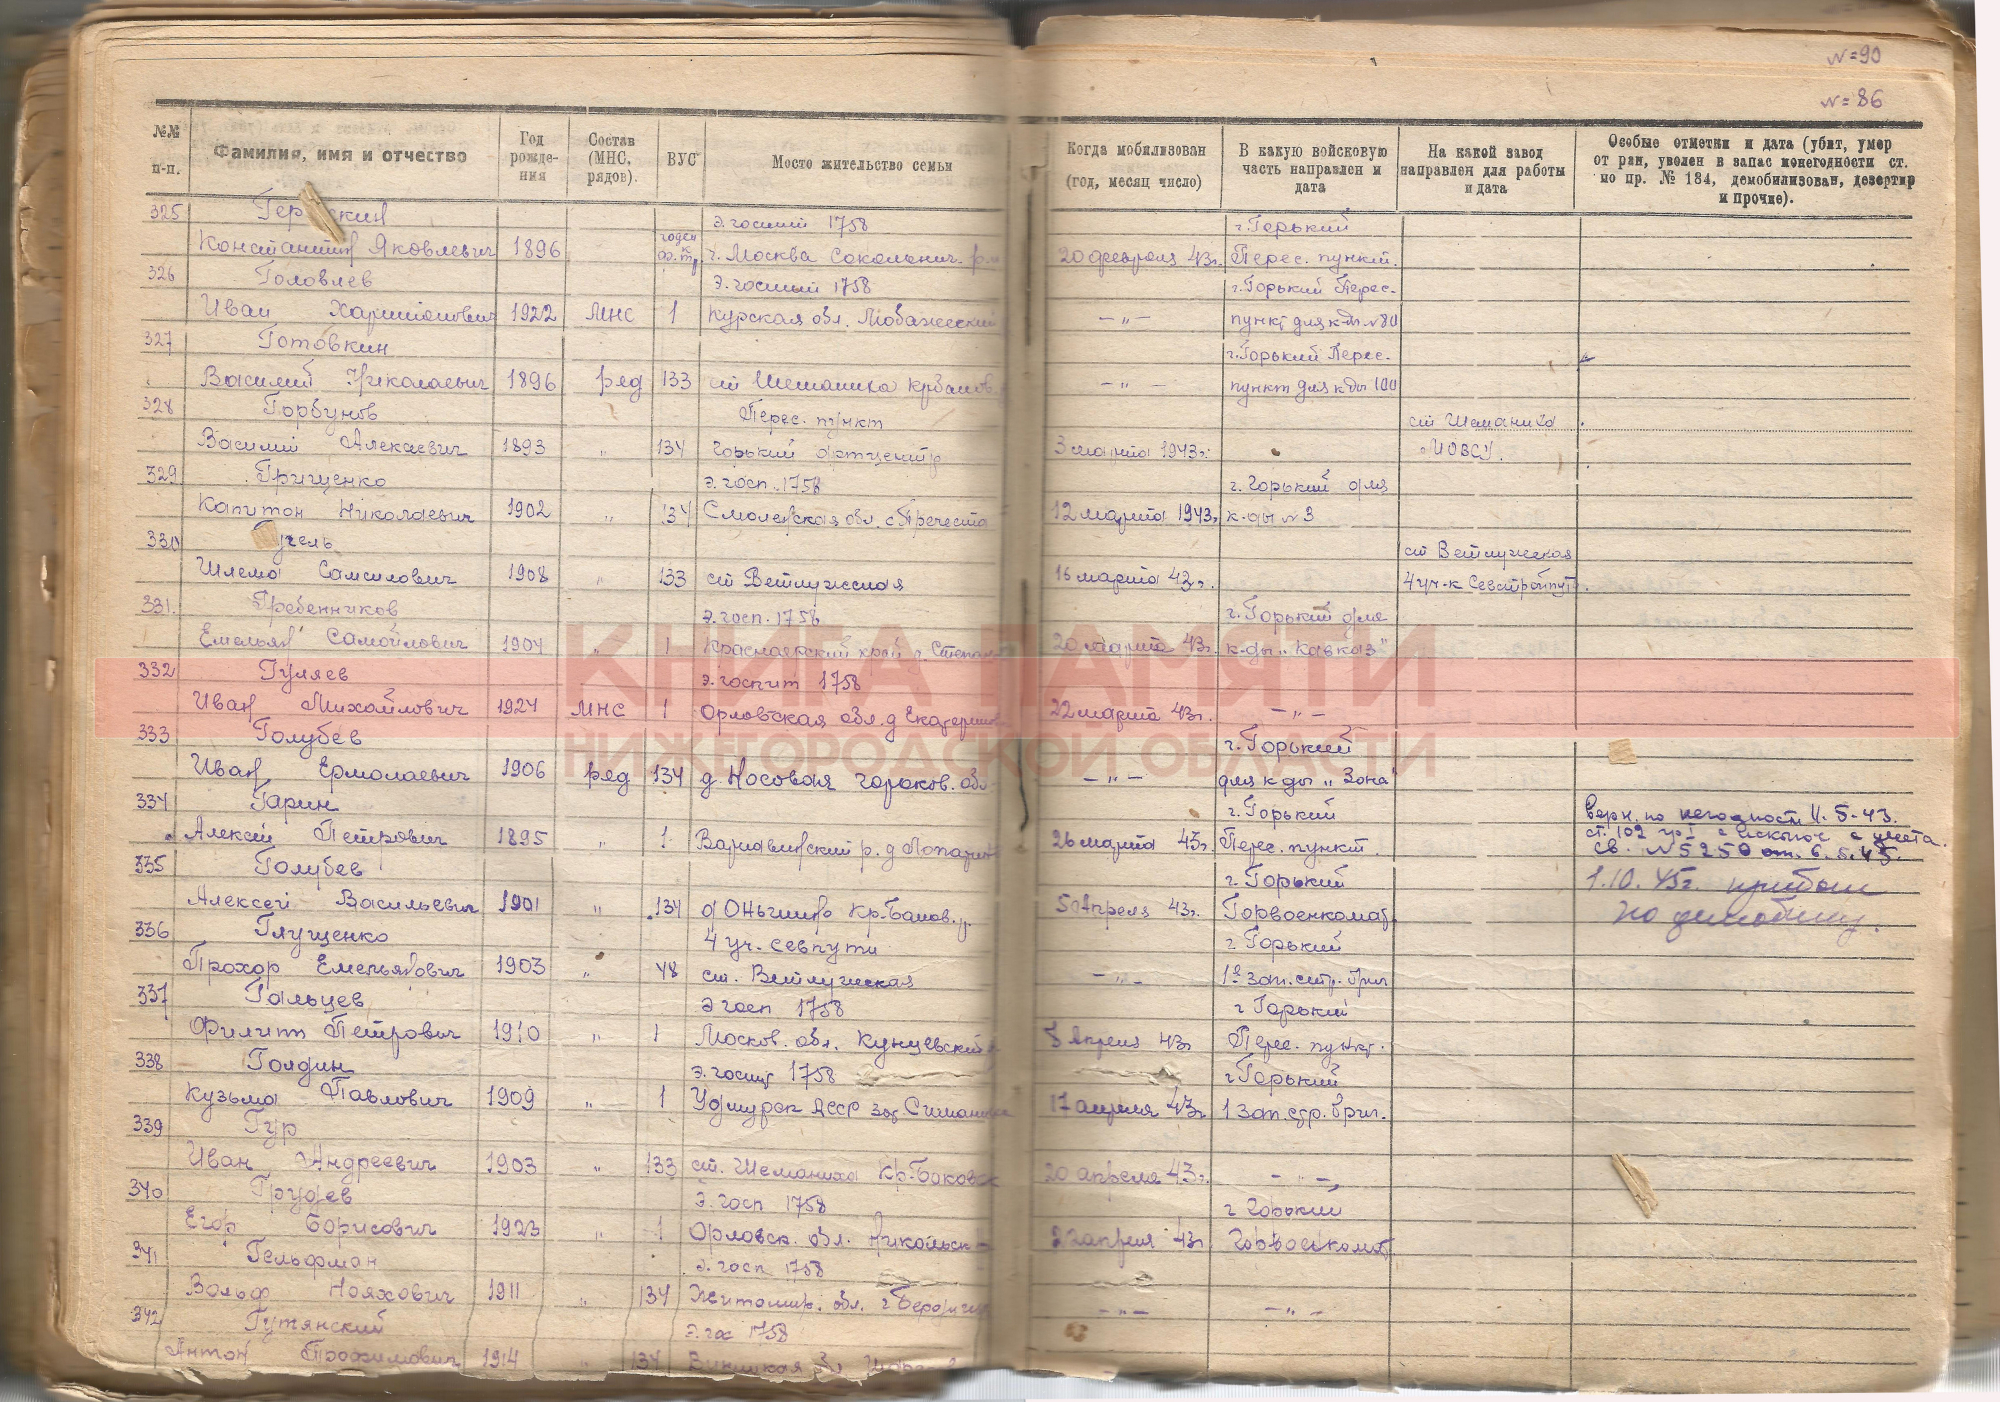 N=90
N=86
№№ п-п.
Фамилия, имя и отчество
Год рожде-ния
Состав (МНС, рядов).
ВУС
Место жительство семьи
Когда мобилизован (год, месяц число)
В какую войсковую часть направлен и дата
На какой завод направлен для работы и дата
Особые отметки и дата (убит, умер от ран, уволен в запас понегодности ст. по пр. № 184, демобилизован, дезертир и прочие).
325 э. госпит 1758 г. Горький
Константин Яковлевич 1896 годен к г. Москва Сокольнич. 20 февраля 43г. Перес. пункт.
326 Головлев э. госпит 1758 г. Горький Перес.
Иван Харитонович 1922 МНС 1 Курская обл. —"— пункт для к-ды №80
327 Готовкин г. Горький Перес.
Василий Николаевич 1896 ряд 133 ст Шеманиха —"— пункт для к-ды 100
328 Горбунов Перес. пункт ст Шеманиха
Василий Алексеевич 1893 " 134 Горький 3 марта 1943г.
329 Грищенко э. госп. 1758 г. Горький для
Капитон Николаевич 1902 " 134 Смоленская обл. 12 марта 1943г. к-ды №3
330 ст Ветлужская
Шлема Самсилович 1908 " 133 ст Ветлужская 16 марта 43г. 4 уч-к
331. Гребенников э. госп. 1758 г. Горький для
Емельян Самойлович 1904 " 1 Красноярский край г. 20 марта 43г. к-ды "Кавказ"
332 Гуляев э. госпит 1758
Иван Михайлович 1924 МНС 1 Орловская обл. д 22 марта 43г. —"—
333 Голубев г. Горький
Иван Ермолаевич 1906 ряд 134 д. Носовая горьков. обл 43г. —"— для к-ды "Зона"
334 Гарин г. Горький
Алексей Петрович 1895 " 1. Варнавинский р. д 26 марта 43г. Перес. пункт.
верн. по негодности 11.5-43.
ст. 102 гр I с исключ с учета.
св. №5250 от. 6.5.45.
335 Голубев г. Горький 1.10.45г. прибыл
Алексей Васильевич 1901 " 134 5 Апреля 43г. Горвоенкомат по демобилиз.
336 Глущенко 4 уч. севпути г Горький
Прохор Емельянович 1903 " 48 ст. Ветлужская —"— 1й зап. стр. бриг
337 Гальцев э госп 1758 г Горький
Филипп Петрович 1910 " 1 Москов. обл. Кунцевский 8 Апреля 43г Перес. пункт.
338 Голдин э. госпит 1758 г Горький
Кузьма Павлович 1909 " 1 Удмурск АССР 17 апреля 43г 1 зап. стр. бриг.
339 Гур
Иван Андреевич 1903 " 133 ст. Шеманиха Кр-Баковск 20 апреля 43г. —"—
340 Грудев э. госп 1758 г Горький
Егор Борисович 1923 " 1 Орловск. обл. Никольск 22 апреля 43г Горвоенкомат
341 Гельфман э. госп 1758
Вольф Нояхович 1911 " 134 Житомир. обл. г —"— —"—
342 Гутянский э. гос 1758
Антон Трофимович 1914 " 134 обл
КНИГА ПАМЯТИ
НИЖЕГОРОДСКОЙ ОБЛАСТИ